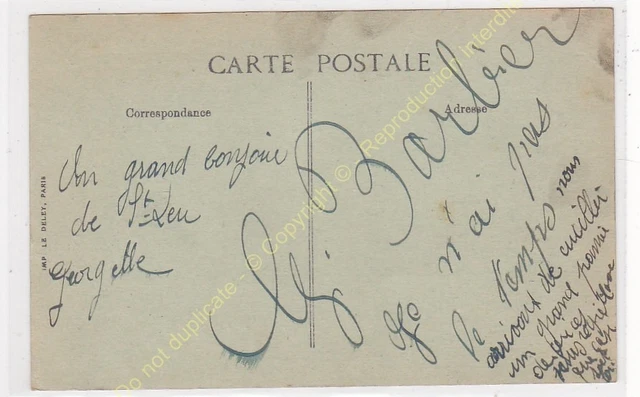 CARTE POSTALE
Correspondance
Adresse
Un grand bonjour
de St Leu
Georgette
Barbier
Je n'ai pas
le temps nous
arrivons de cueillir
un grand panier
de
IMP. LE DELEY, PARIS
Do not duplicate - © Copyright © - Reproduction Interdite